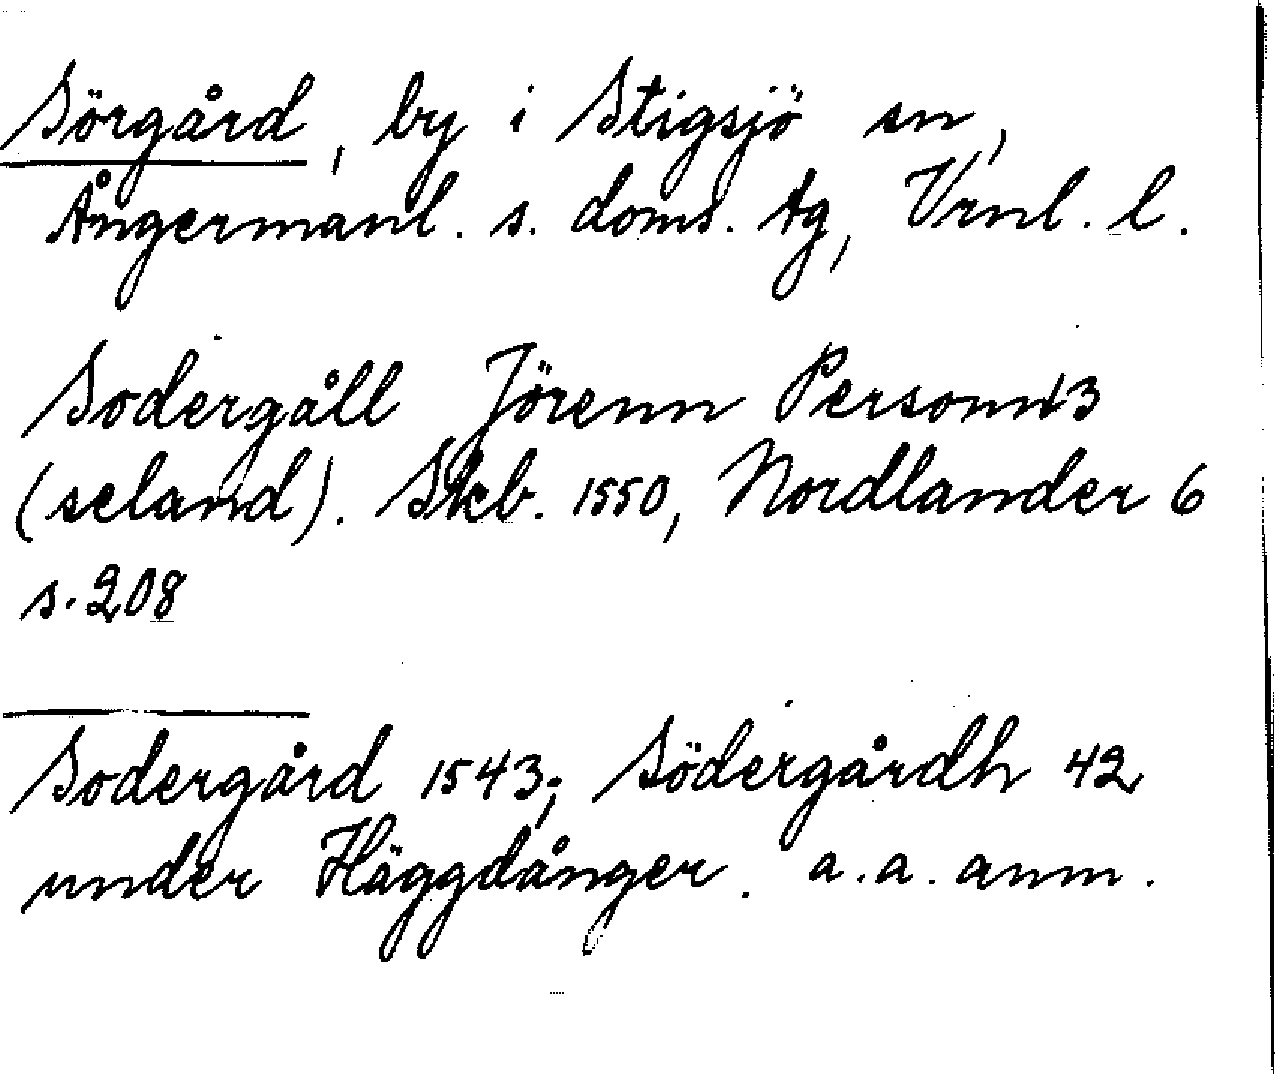 Sörgård, by i Stigsjö sn,
Ångermanl. s. doms. tg, Vrnl. l.
Sodergåll Jörenn Personn 13
(seland). Skb. 1550, Nordlander 6
s. 208
Sodergård 1543; Södergårdh 42
under Häggdånger. a. a. anm.